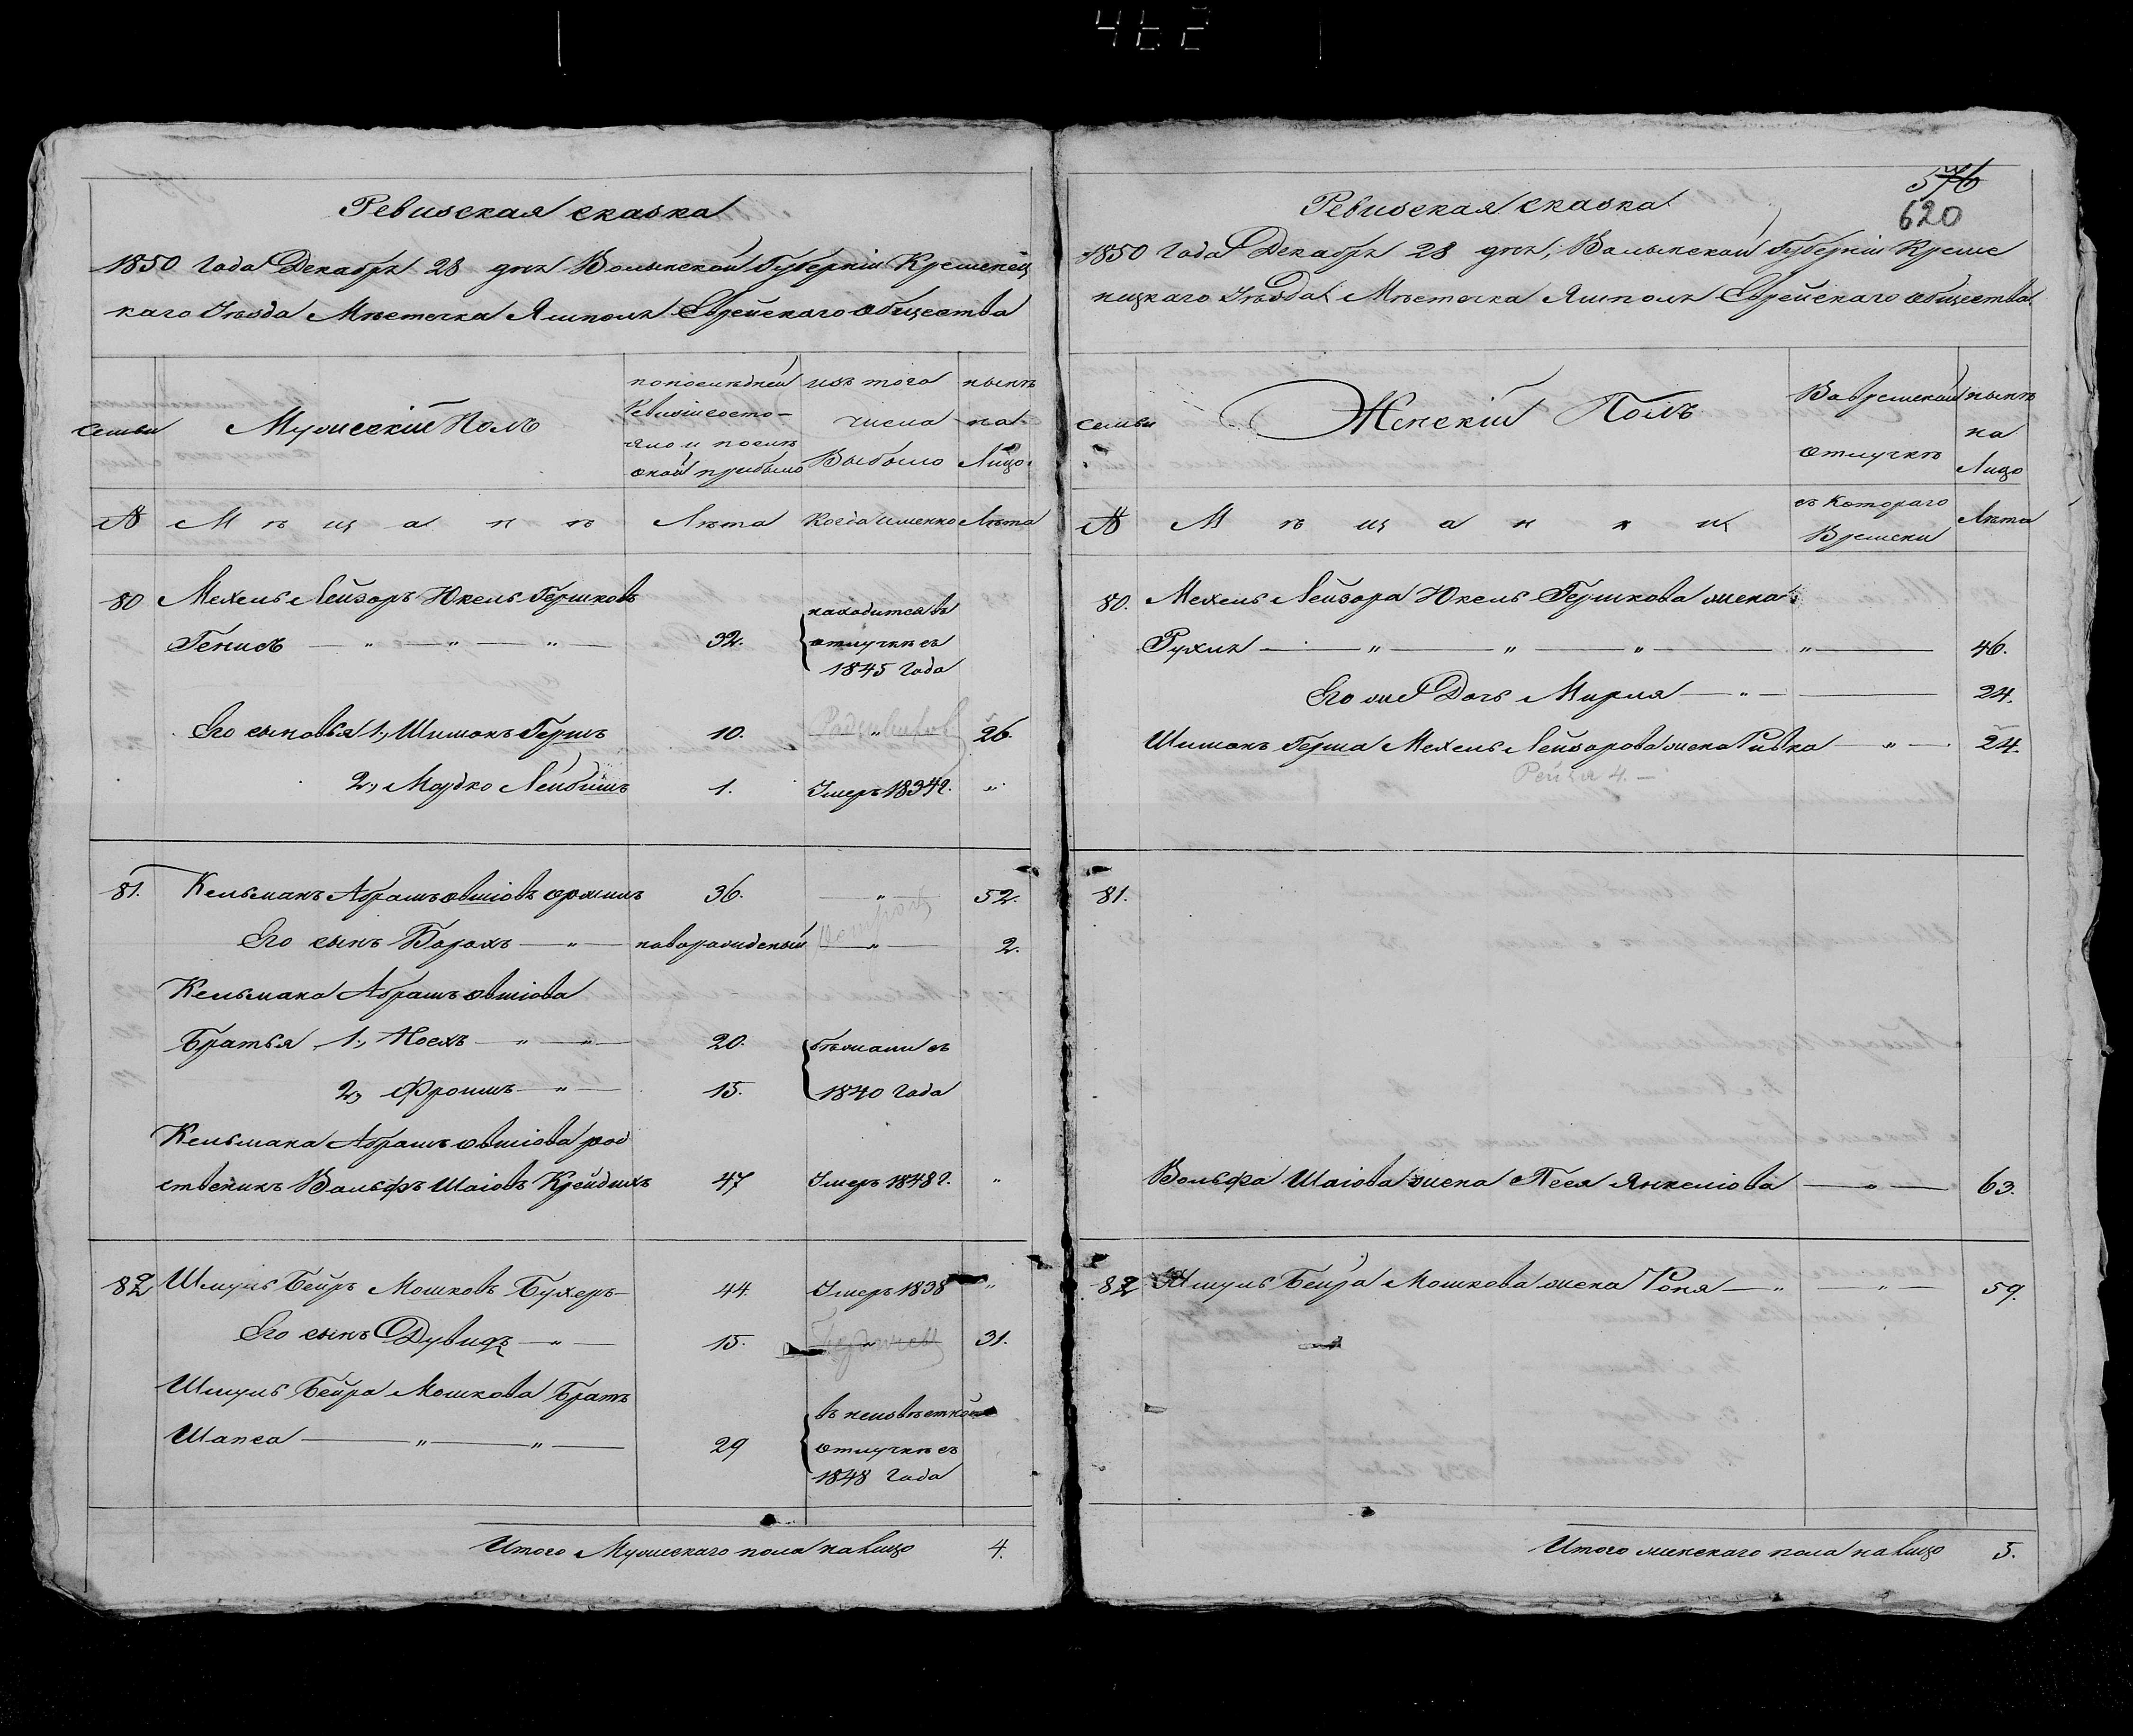 462
Ревизская сказка
1850 Года Декабря 28 дня Волынской Губерніи Кременец
каго Уѣзда Мѣстечка Ямполя Еврейскаго общества
семьи
Мужескій Полъ
по последней
Ревизіи состо-
яло и после
оной прибыло
изъ того
числа
Выбыло
нынѣ
на
Лицо
№
М ѣ щ а н ѣ
Лѣта
Когда именно
Лѣта
80 Мехель Лейзоръ Юкель Гершковъ
Генисъ — " — " — " — 32. находится въ
отлучкѣ съ
1845 Года
Его сыновья 1, Шимонъ Гершъ 10. " 26.
2, Мордко Лейбишъ 1. Умеръ 1834г. "
81. Кельманъ Абрамъ овшіовъ 36. — " — 52.
Его сынъ Борохъ — " — новорожденый — " — 2.
Кельмана Абрамъ овшіова
Братья 1, Носхъ — " — " — 20. бѣжали съ
2, Фроимъ — " — 15. 1840 Года
Кельмана Абрамъ овшіова род
ственикъ Вольфъ Шаіовъ Крейдихъ 47 Умеръ 1848г. "
82 Шмуль Бейръ Мошковъ Бухеръ — 44. Умеръ 1838 "
Его сынъ Дувидъ — " — 15. " 31.
Шмуль Бейра Мошкова Братъ
Шапса — " — " — 29 въ неизвѣстной
отлучкѣ съ
1848 Года
Итого Мужескаго пола на лицо 4.
576
620
Ревизская сказка
1850 Года Декабря 28 дня, Волынской Губерніи Креме
ницкаго Уѣзда Мѣстечка Ямполя Еврейскаго общества
семьи
Женскій Полъ
Во временной
отлучкѣ
нынѣ
на
Лицо
№
М ѣ щ а н к и
съ Котораго
Времени
Лѣта
80. Мехель Лейзора Юкель Гершкова жена
Рухля — " — " — " — " — 46.
Его же Дочь Мирля — " — 24.
Шимонъ Герша Мехель Лейзорова жена Ривка — " — 24.
Рейзя 4. —
81.
Вольфа Шаіова жена Песя Янкеліова — " — 63.
82 Шмуль Бейра Мошкова жена Роня — " — " — 59.
Итого женскаго пола на лицо 5.